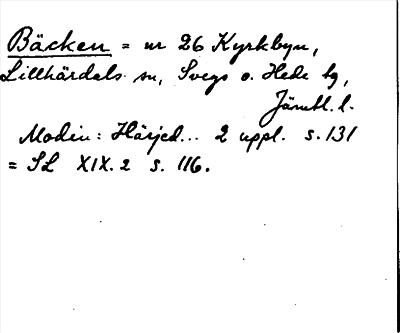 Bäcken = nr 26 Kyrkbyn,
Lillhärdals sn, Svegs o. Hede tg,
Jämtl. l.
Modin: Härjed... 2 uppl. s. 131
= SL XIX. 2 s. 116.